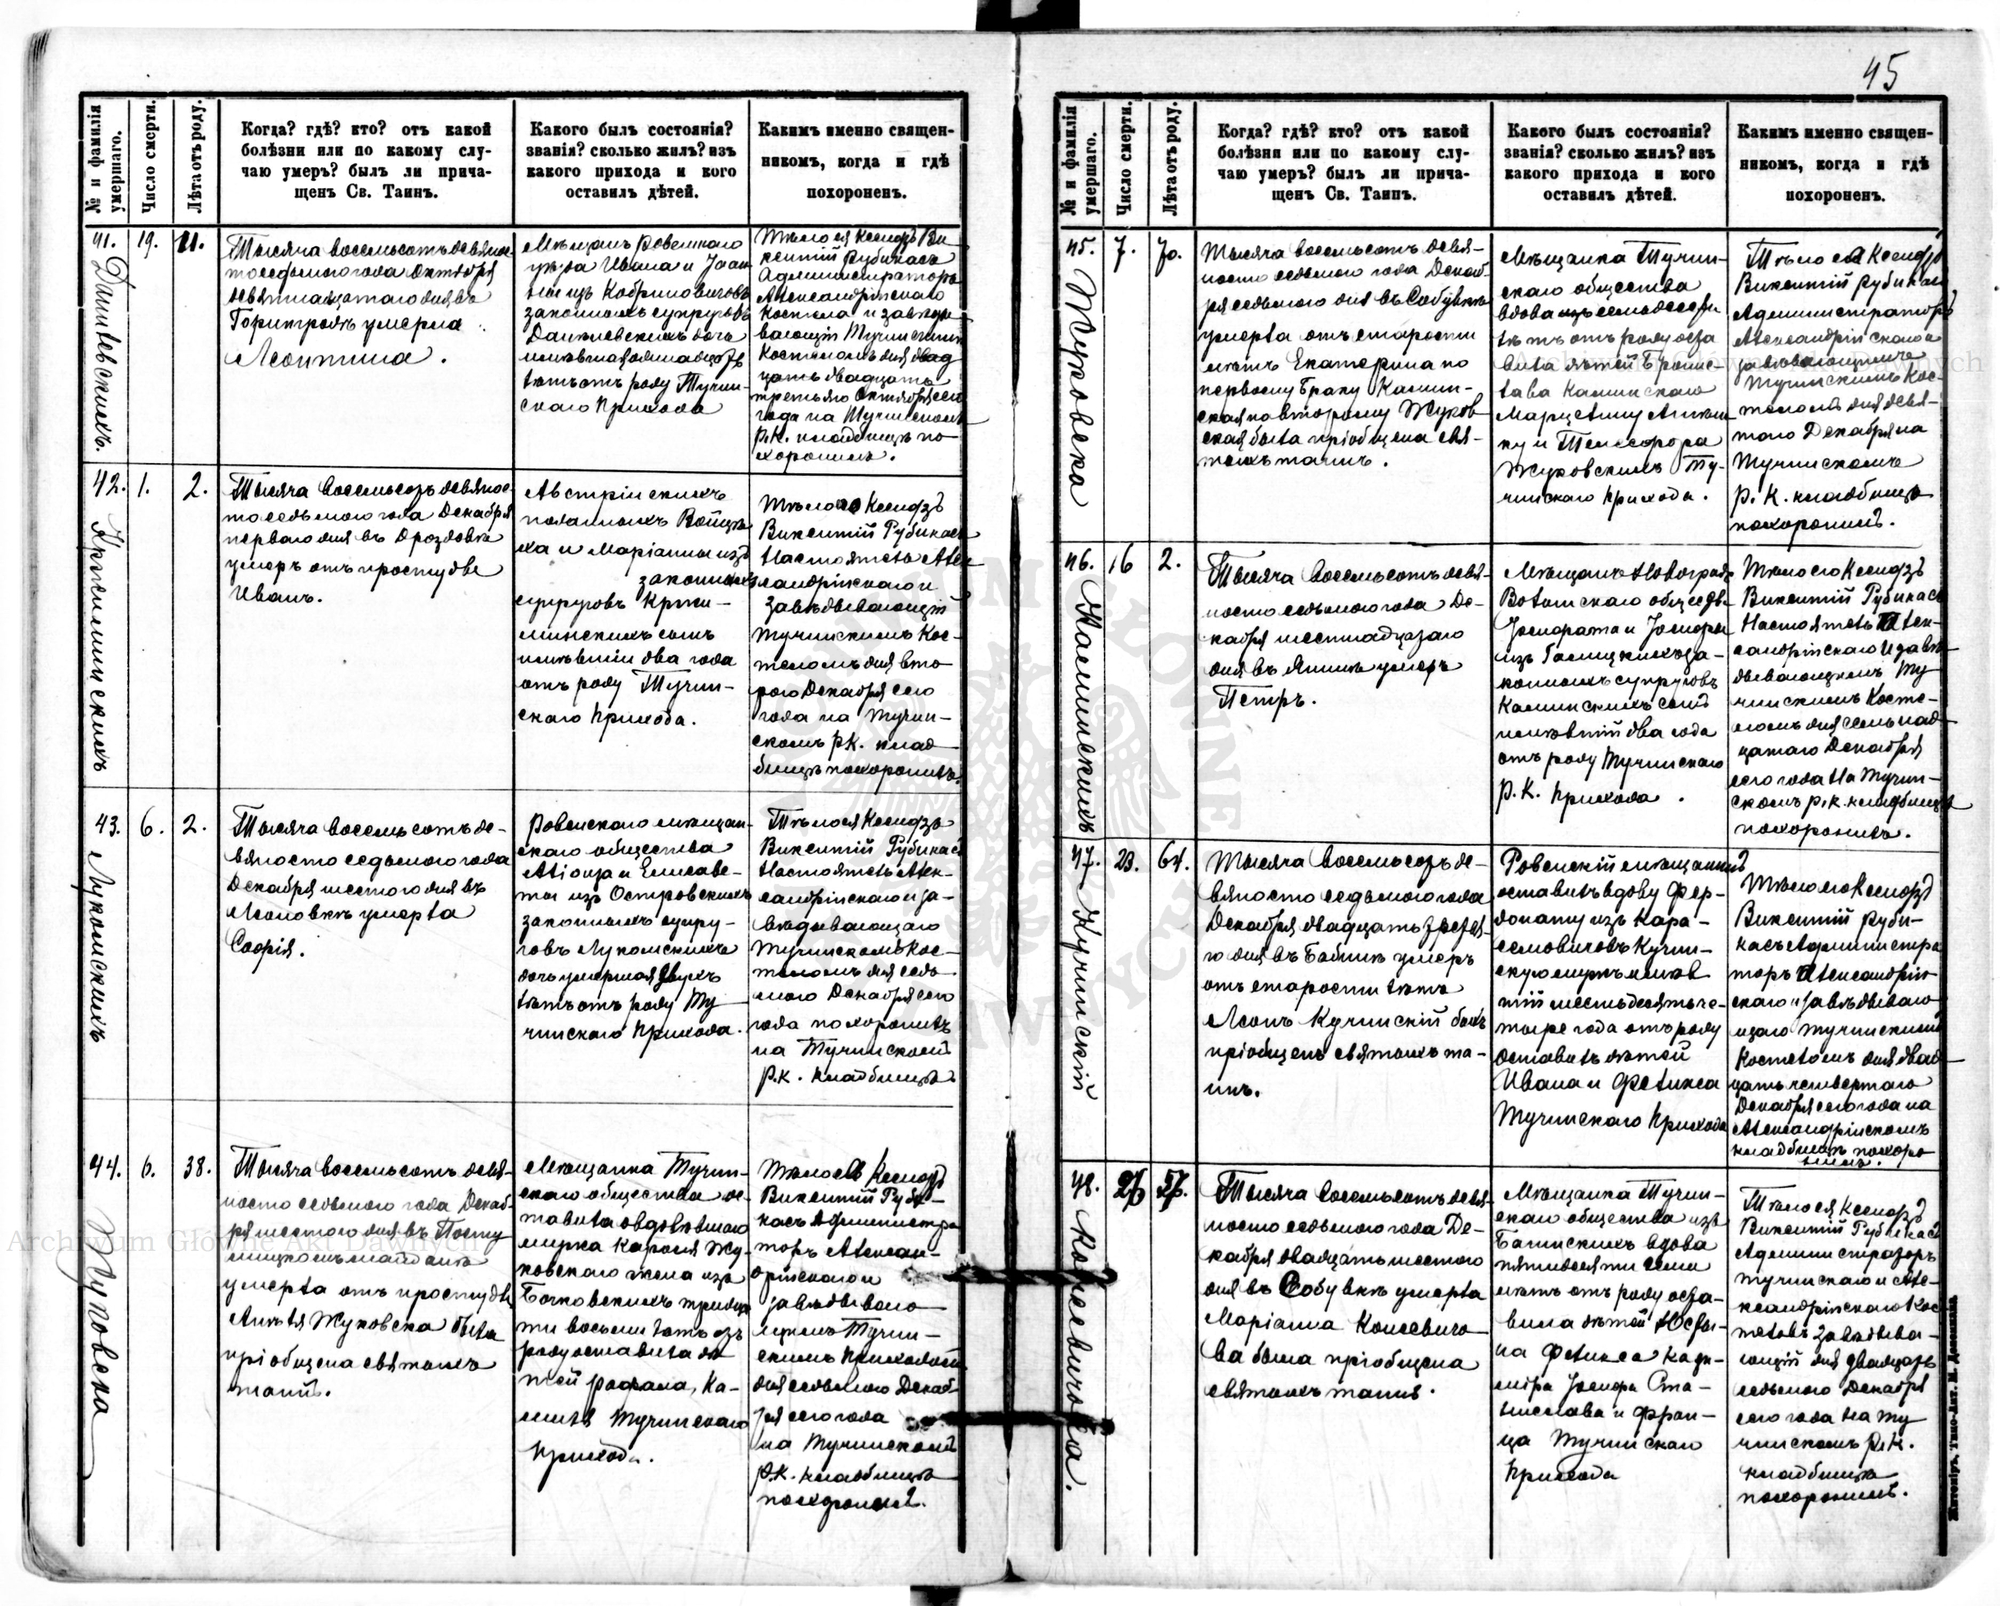 45
№ и фамилія умершаго.
Число смерти.
Лѣта отъ роду.
Когда? гдѣ? кто? отъ какой
болѣзни или по какому слу-
чаю умеръ? былъ ли прича-
щенъ Св. Таинъ.
Какого былъ состоянія?
званія? сколько жилъ? изъ
какого прихода и кого
оставилъ дѣтей.
Какимъ именно священ-
никомъ, когда и гдѣ
похороненъ.
41.
19.
11.
Тысяча восемьсотъ девянос-
то седьмого года Октября
девятнадцатаго дня въ
умерла
Леонтина.
Мѣщанъ Ровенскаго
уѣзда Ивана и Іоан-
ны изъ Кобриновичовъ
законныхъ супруговъ
Данѣевскихъ дочь
лѣтъ отъ роду Тучин-
скаго прихода
Тѣло ея Ксендзъ Ви-
кентій Рубикасъ
Администраторъ
Александрійскаго
костела и завѣды-
вающій Тучинскимъ
костеломъ дня двад-
цать двадцать
третьяго Октября сего
года на Тучинскомъ
Р.К. кладбищѣ по-
хоронилъ.
42.
Кржеминскихъ
1.
2.
Тысяча восемьсотъ девянос-
то седьмого года Декабря
перваго дня въ Дроздовкѣ
умеръ отъ простуды
Иванъ.
Австрійскихъ
подданныхъ Войцѣ-
ха и Маріанны изъ
законныхъ
супруговъ Крже-
минскихъ сынъ
имѣвшій два года
отъ роду Тучин-
скаго прихода.
Тѣло его Ксендзъ
Викентій Рубикасъ
Настоятель Алек-
сандрійскаго и
завѣдывающій
Тучинскимъ Кос-
теломъ дня вто-
рого Декабря сего
года на Тучин-
скомъ РК. клад-
бищѣ похоронилъ.
43.
Лукомскихъ
6.
2.
Тысяча восемьсотъ де-
вяносто седьмого года
Декабря шестого дня въ
умерла
Софія.
Ровенскаго мѣщан-
скаго общества
Алоиза и Елисаве-
ты изъ Островскихъ
законныхъ супру-
говъ Лукомскихъ
дочь умершая двухъ
лѣтъ отъ роду Ту-
чинскаго прихода.
Тѣло ея Ксендзъ
Викентій Рубикасъ
Настоятель Алек-
сандрійскаго и за-
вѣдывающаго
Тучинскомъ Кос-
теломъ дня седь-
мого Декабря сего
года похоронилъ
на Тучинскомъ
Р.К. кладбищѣ
44.
Жуковска
6.
38.
Тысяча восемьсотъ девя-
носто седьмого года Декаб-
ря шестого дня въ
умерла отъ простуды
Жуковска была
пріобщена святыхъ
таинъ.
Мѣщанка Тучин-
скаго общества ос-
тавила овдовѣвшаго
мужа Кароля Жу-
ковскаго жена изъ
Бочковскихъ тридца-
ти восьми лѣтъ отъ
роду оставила дѣ-
тей Рафала, Ка-
Тучинскаго
прихода.
Тѣло ея Ксендзъ
Викентій Руби-
касъ Администра-
торъ Алексан-
дрійскаго и
завѣдываю-
щимъ Тучин-
скимъ приходомъ
дня седьмого Декаб-
ря сего года
на Тучинскомъ
Р.К. кладбищѣ
похоронилъ.
№ и фамилія умершаго.
Число смерти.
Лѣта отъ роду.
Когда? гдѣ? кто? отъ какой
болѣзни или по какому слу-
чаю умеръ? былъ ли прича-
щенъ Св. Таинъ.
Какого былъ состоянія?
званія? сколько жилъ? изъ
какого прихода и кого
оставилъ дѣтей.
Какимъ именно священ-
никомъ, когда и гдѣ
похороненъ.
45.
Жуковска
7.
70.
Тысяча восемьсотъ девя-
носто седьмого года Декаб-
ря седьмого дня въ Собувкѣ
умерла отъ старости
лѣтъ Екатерина по
первому браку Камин-
ская по второму Жуков-
ская была пріобщена свя-
тыхъ таинъ.
Мѣщанка Тучин-
скаго общества
вдова семьдесяти
лѣтъ отъ роду оста-
вила дѣтей Бронис-
лава Каминскаго
Марцелину
и Телесфора
Жуковскихъ Ту-
чинскаго прихода.
Тѣло ея Ксендзъ
Викентій Рубикасъ,
Администраторъ
Александрійскаго и
Тучинскимъ Кос-
теломъ дня девя-
того Декабря на
Тучинскомъ
Р.К. кладбищѣ
похоронилъ.
46.
Каминскихъ
16
2.
Тысяча восемьсотъ девя-
носто седьмого года Де-
кабря шестнадцатаго
дня въ умеръ
Петръ.
Мѣщанъ Новоградъ
Волынскаго общества
и Іосифы
изъ Галицкихъ за-
конныхъ супруговъ
Каминскихъ сынъ
имѣвшій два года
отъ роду Тучинскаго
Р.К. прихода.
Тѣло его Ксендзъ
Викентій Рубикасъ
Настоятель Алек-
сандрійскаго и завѣ-
дывающимъ Ту-
чинскимъ Косте-
ломъ дня семнад-
цатаго Декабря
сего года на Тучин-
скомъ Р.К. кладбищѣ
похоронилъ.
47.
Кучинскій
23.
64.
Тысяча восемьсотъ де-
вяносто седьмого года
Декабря двадцать третья-
го дня въ Бабинѣ умеръ
отъ старости лѣтъ
Леонъ Кучинскій былъ
пріобщенъ святыхъ та-
инъ.
Ровенскій мѣщанинъ
оставилъ вдову Фер-
донату изъ Кара-
семовичовъ Кучин-
скую мужъ имѣв-
шій шестьдесять че-
тыре года отъ роду
оставилъ дѣтей
Ивана и Феликса
Тучинскаго прихода
Тѣло его Ксендзъ
Викентій Руби-
касъ Администра-
торъ Александрій-
скаго и завѣдываю-
щаго Тучинскимъ
Костеломъ дня двад-
цать четвертаго
Декабря сего года на
Александрійскомъ
кладбищѣ похоро-
нилъ.
48.
26
57.
Тысяча восемьсотъ девя-
носто седьмого года Де-
кабря двадцать шестого
дня въ Собувкѣ умерла
Маріанна
ва была пріобщена
святыхъ таинъ.
Мѣщанка Тучин-
скаго общества изъ
вдова
пятидесяти семи
лѣтъ отъ роду оста-
вила дѣтей
Феликса Кази-
міра Іосифа Ста-
нислава и Фран-
ца Тучинскаго
прихода
Тѣло ея Ксендзъ
Викентій Рубикасъ
Администраторъ
Тучинскаго и Але-
ксандрійскаго Кос-
теловъ завѣдыва-
ющій дня двадцать
седьмого Декабря
сего года на Ту-
чинскомъ Р.К.
кладбищѣ
похоронилъ.
Житоміръ, Типо-Лит. М. Дененмана.
Archiwum Główne Akt Dawnych
Archiwum Główne Akt Dawnych
ARCHIWUM GŁÓWNE AKT DAWNYCH